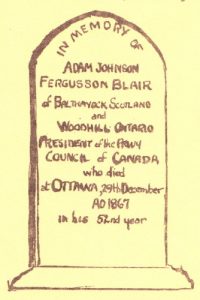 IN MEMORY OF
ADAM JOHNSON
FERGUSSON BLAIR
of BALTHAYOCK, SCOTLAND
and
WOODHILL ONTARIO
PRESIDENT of the PRIVY
COUNCIL OF CANADA
who died
at OTTAWA, 29th December
AD 1867
in his 52nd year